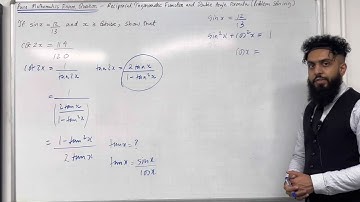 Pure Mathematics Exam Question - Reciprocal Trigonometric Function and Double Angle Formulae (Problem Solving)
If sinx = 12/13 and x is obtuse, show that
cot 2x = 119/120
cot 2x = 1/tan2x tan2x = 2tanx/1-tan²x
= 1/(2tanx/1-tan²x)
= 1-tan²x/2tanx
tanx = ?
tanx = sinx/cosx
sinx = 12/13
sin²x + cos²x = 1
cosx =